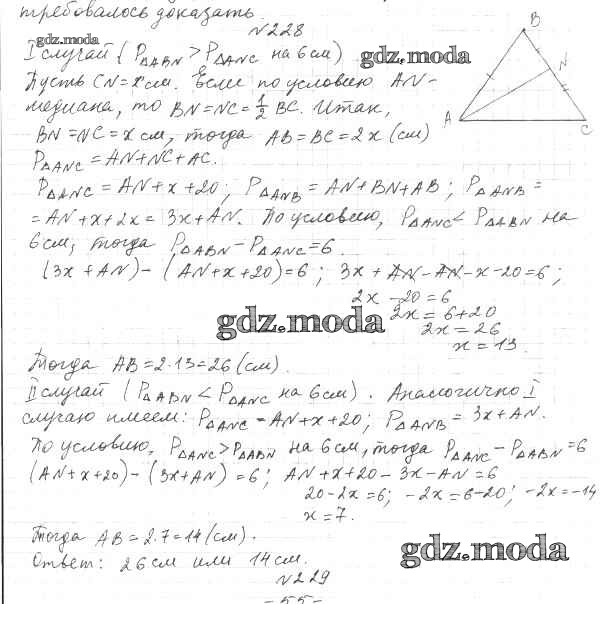 требовалось доказать.
№228
gdz.moda
I случай (P△ABN > P△ANC на 6см) gdz.moda
Пусть CN=x см. Если по условию AN-
медиана, то BN=NC=1/2 BC. Итак,
BN=NC=x см, тогда AB=BC=2x (см)
P△ANC=AN+NC+AC.
P△ANC=AN+x+20; P△ANB=AN+BN+AB; P△ANB=
=AN+x+2x=3x+AN. По условию, P△ANC<P△ABN на
6см, тогда P△ABN-P△ANC=6.
(3x+AN)-(AN+x+20)=6; 3x+AN-AN-x-20=6;
2x-20=6
2x=6+20
gdz.moda
2x=26
x=13.
Тогда AB=2·13=26(см).
II случай (P△ABN<P△ANC на 6см). Аналогично I
случаю имеем: P△ANC=AN+x+20; P△ANB=3x+AN.
По условию, P△ANC>P△ABN на 6см, тогда P△ANC-P△ABN=6
(AN+x+20)-(3x+AN)=6; AN+x+20-3x-AN=6
20-2x=6; -2x=6-20; -2x=-14
x=7.
Тогда AB=2·7=14(см).
Ответ: 26см или 14см.
gdz.moda
№229
-55-
B
N
A
C